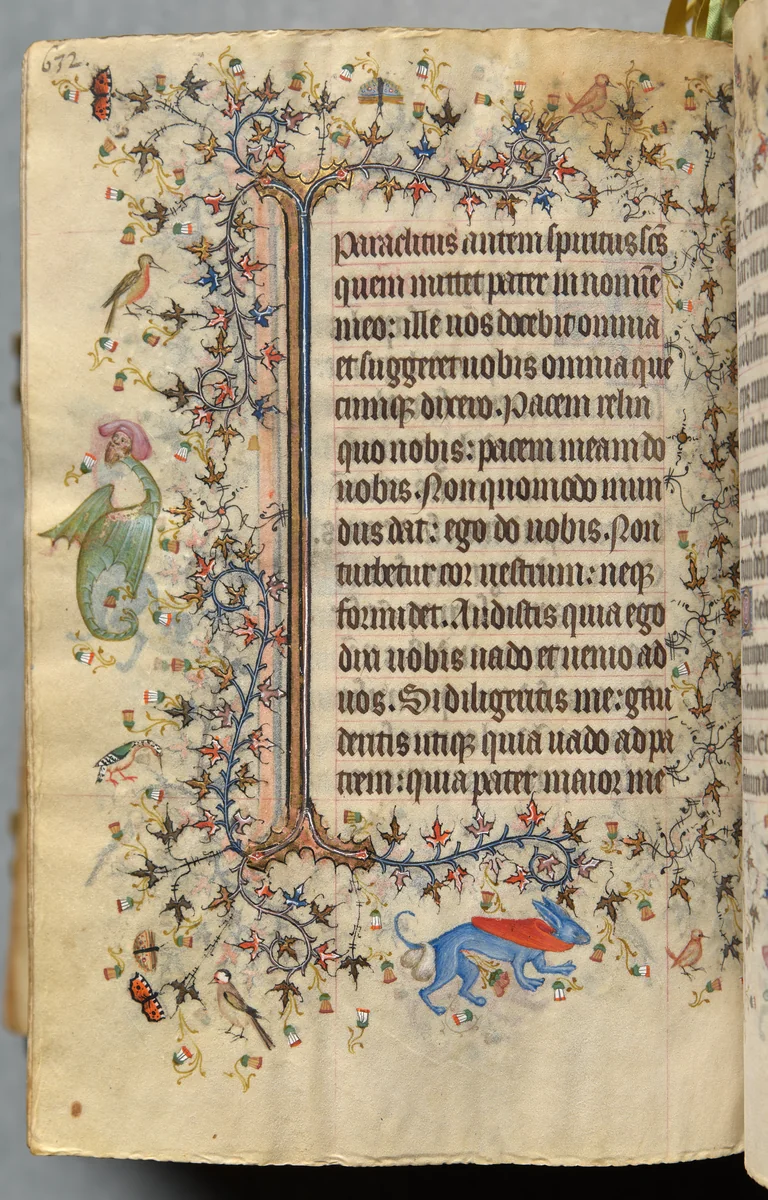 672.
Paraclitus autem spiritus sc̄s
quem mittet pater in nomīe
meo: ille uos docebit omnia
et suggeret uobis omnia que
cumqȝ dixero. Pacem relin
quo uobis: pacem meam do
uobis. Non quomodo mun
dus dat: ego do uobis. Non
turbetur cor uestrum: neqȝ
formidet. Audistis quia ego
dixi uobis uado et uenio ad
uos. Si diligeritis me: gau
deritis utiqȝ quia uado ad pa
trem: quia pater maior me